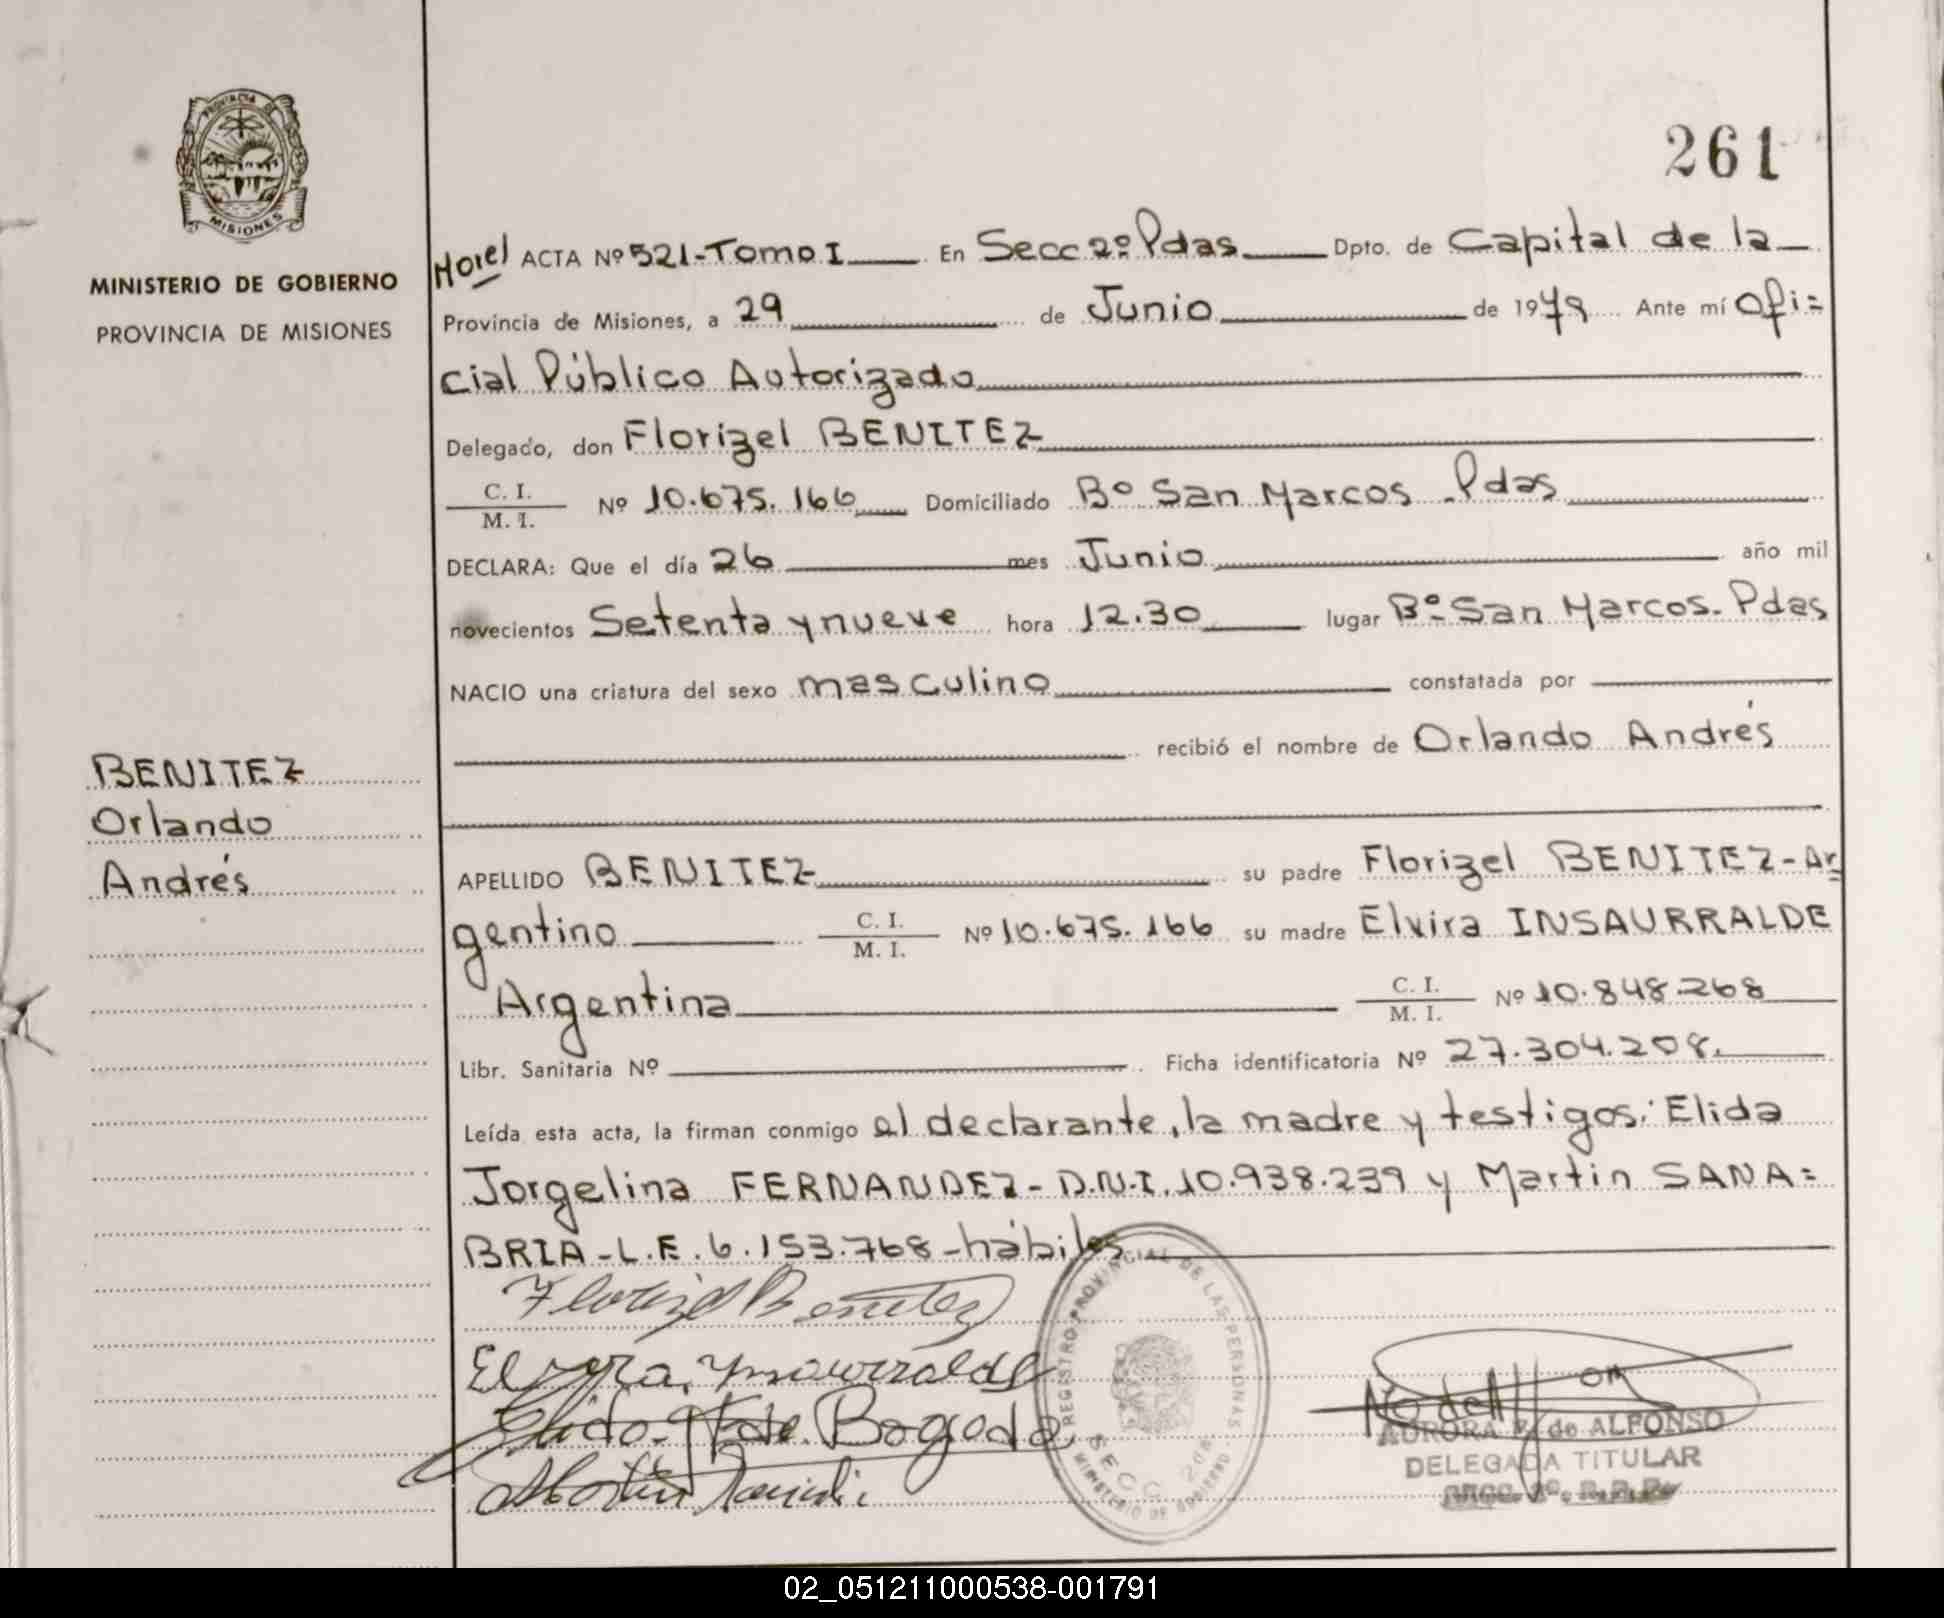 PROVINCIA DE
MISIONES
MINISTERIO DE GOBIERNO
PROVINCIA DE MISIONES
261
ACTA Nº 521-Tomo I En Secc 2º Pdas Dpto. de Capital de la
Provincia de Misiones, a 29 de Junio de 1979 Ante mí Ofi=
cial Público Autorizado
Delegado, don Florizel BENITEZ
C. I.
M. I. Nº 10.675.166 Domiciliado Bº San Marcos Pdas
DECLARA: Que el día 26 mes Junio año mil
novecientos Setenta y nueve hora 12.30 lugar Bº San Marcos. Pdas
NACIO una criatura del sexo masculino constatada por
recibió el nombre de Orlando Andrés
BENITEZ
Orlando
Andrés
APELLIDO BENITEZ su padre Florizel BENITEZ-Ar
gentino C. I.
M. I. Nº 10.675.166 su madre Elvira INSAURRALDE
Argentina C. I.
M. I. Nº 10.848.268
Libr. Sanitaria Nº Ficha identificatoria Nº 27.304.208.
Leída esta acta, la firman conmigo el declarante, la madre y testigos: Elida
Jorgelina FERNANDEZ- D.N.I. 10.938.239 y Martin SANA=
BRIA-L.E. 6.153.768-hábiles
Florizel Benitez
Elvira Insaurralde
Elida de Bogado
Martin
REGISTRO PROVINCIAL DE LAS PERSONAS
SECC 2da
MINISTERIO DE GOBIERNO
AURORA de ALFONSO
DELEGADA TITULAR
02_051211000538-001791